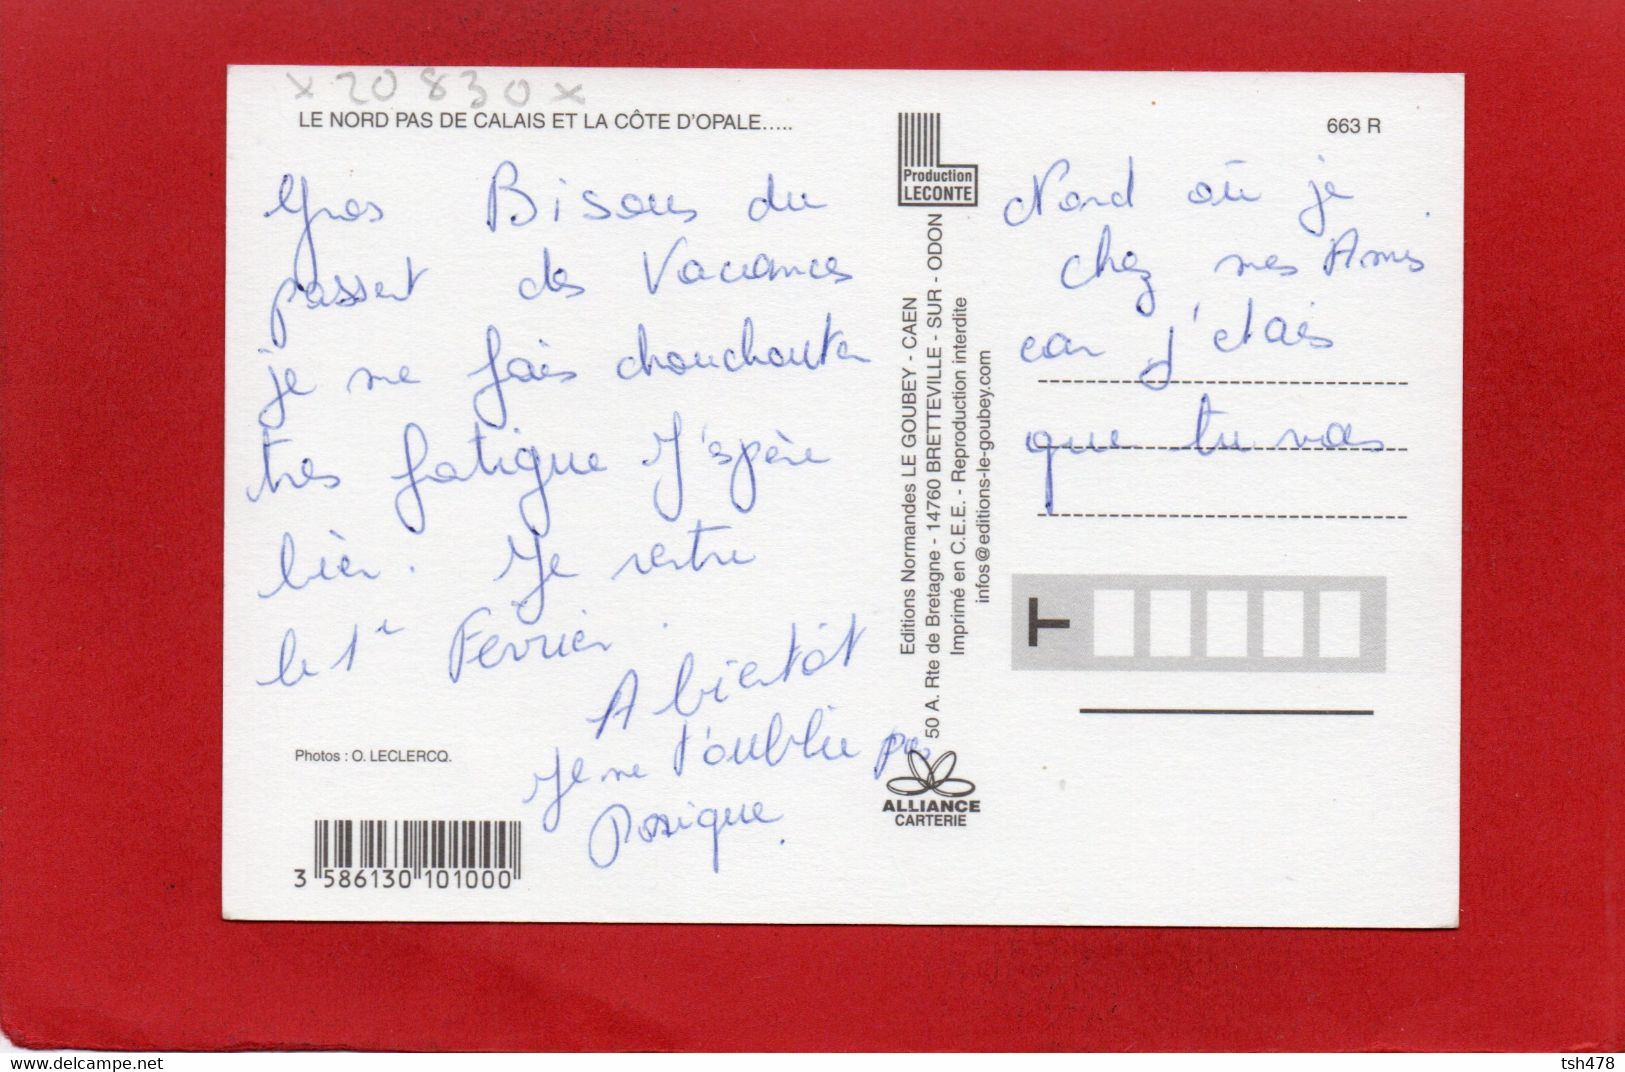 x 20830 x
LE NORD PAS DE CALAIS ET LA CÔTE D'OPALE.....
663 R
Gros Bisous du Nord où je
passent des Vacances chez mes Amis.
je me fais chouchouter car j'etais
tres fatigue J'spère que tu vas
bien. Je rentre
le 1er Fevrier.
A bientôt
Je ne t'oublie pas
Production
LECONTE
Editions Normandes LE GOUBEY - CAEN
50 A. Rte de Bretagne - 14760 BRETTEVILLE - SUR - ODON
Imprimé en C.E.E. - Reproduction interdite
infos@editions-le-goubey.com
T
Photos : O. LECLERCQ.
ALLIANCE
CARTERIE
3 586130 101000
tsh478